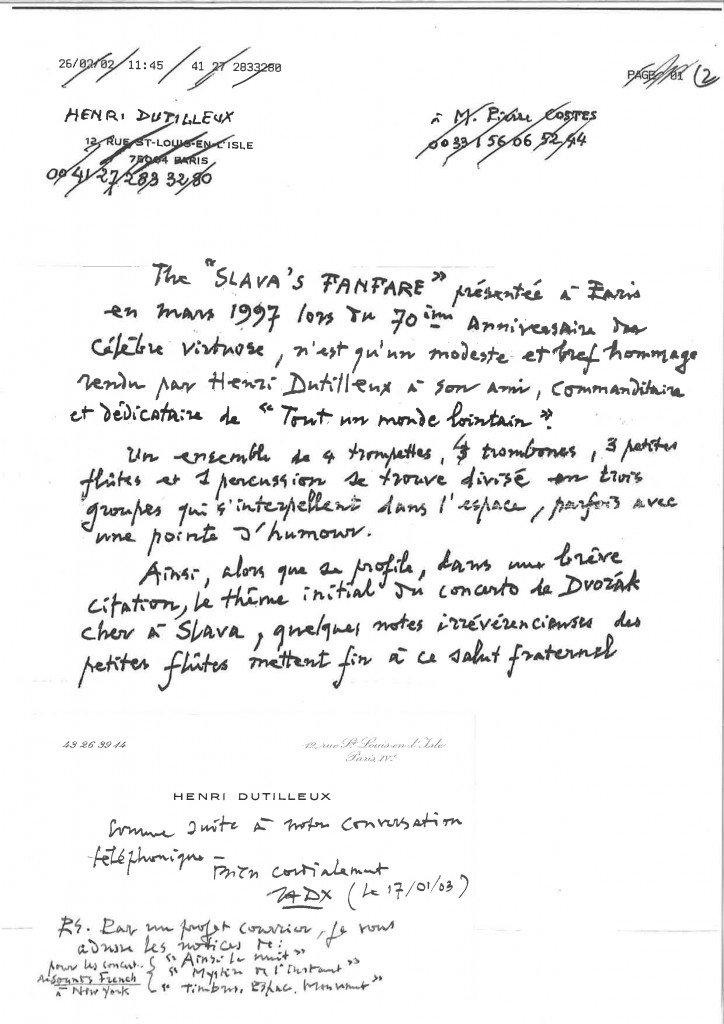 26/02/02 11:45 41 27 2833280 PAGE 01 (2
HENRI DUTILLEUX
12, RUE ST-LOUIS-EN-L'ISLE
75004 PARIS
00 41 27 283 32 80
à M. Pierre COSTES
00 33 1 56 06 52 44
The "SLAVA'S FANFARE" présentée à Paris
en mars 1997 lors du 70ième Anniversaire du
Célèbre virtuose, n'est qu'un modeste et bref hommage
rendu par Henri Dutilleux à son ami, commanditaire
et dédicataire de "Tout un monde lointain".
Un ensemble de 4 trompettes, trombones, 3 petites
flûtes et 1 percussion se trouve divisé en trois
groupes qui s'interpellent dans l'espace, parfois avec
une pointe d'humour.
Ainsi, alors que se profile, dans une brève
citation, le thème initial du concerto de Dvořák
cher à Slava, quelques notes irrévérencieuses des
petites flûtes mettent fin à ce salut fraternel
43 26 39 14
19, rue St Louis-en-l'Isle
Paris IVe
HENRI DUTILLEUX
Comme suite à notre conversation
téléphonique –
Bien cordialement
(le 17/01/03)
PS. Par un projet courrier, je vous
adresse les notices de:
pour les concerts { "Ainsi la nuit"
Sounds French "Mystère de l'instant"
à New York "Timbres, Espace, Mouvement"